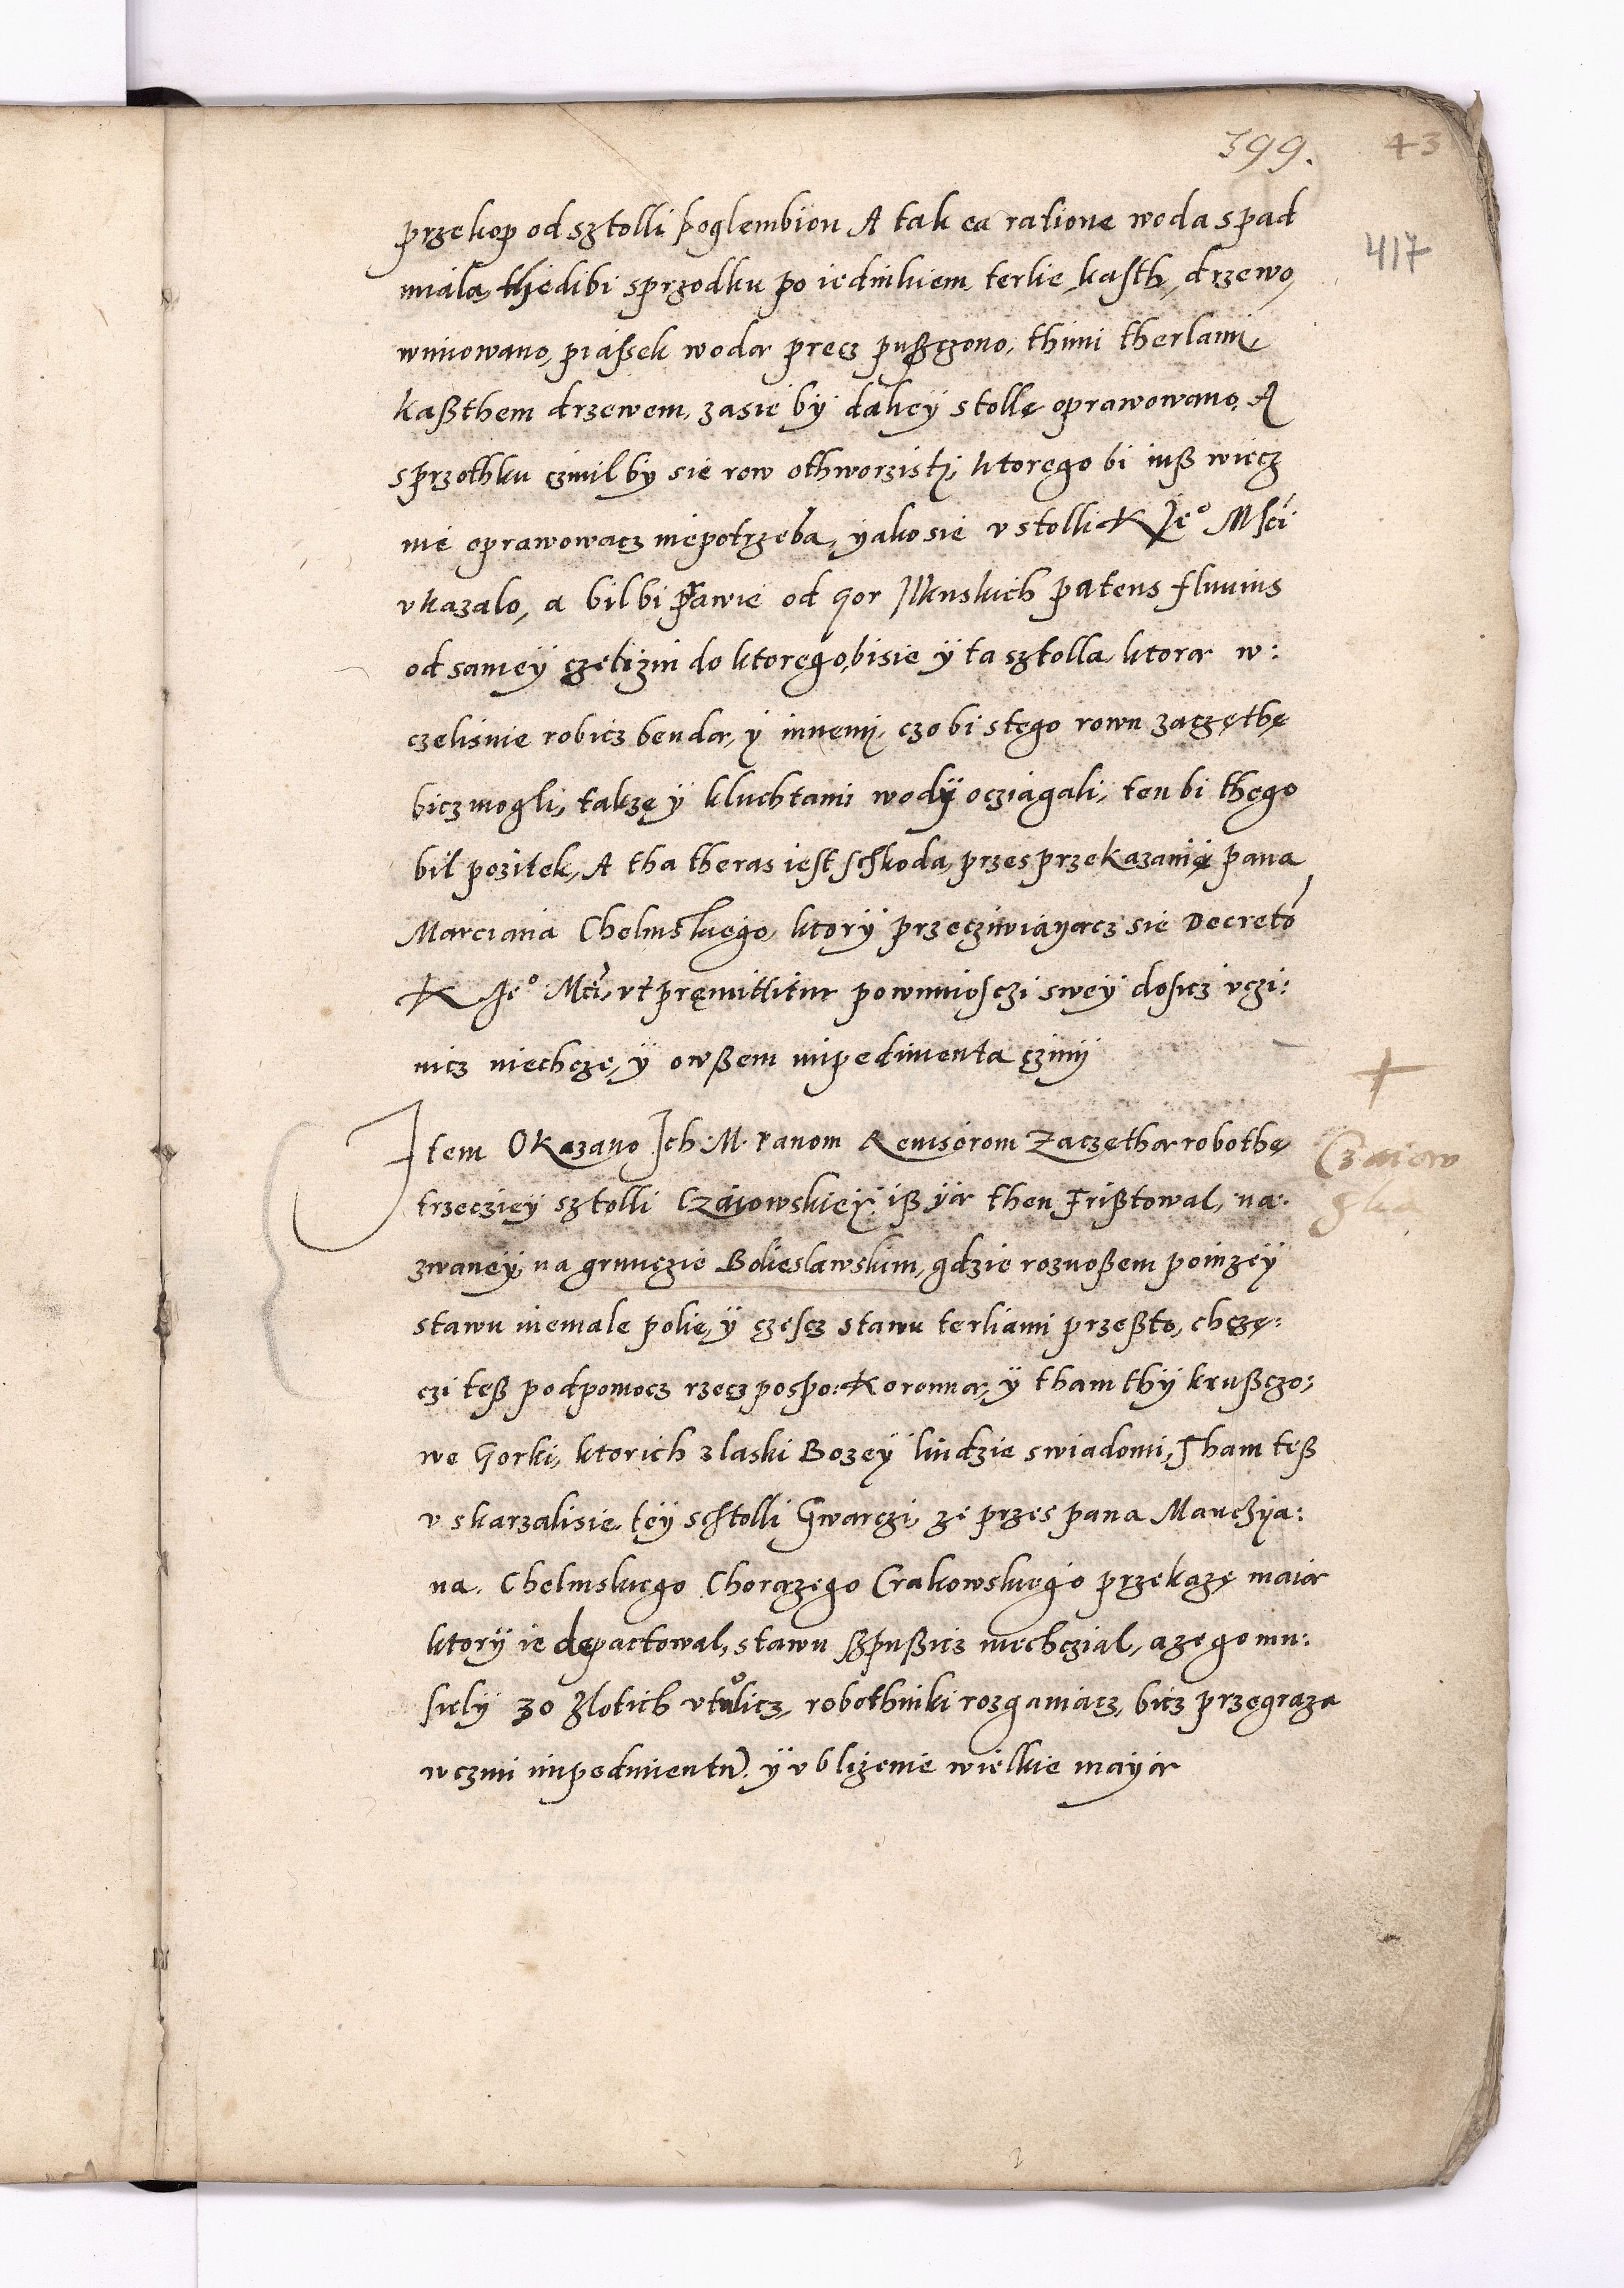 399.
43
417
przekop od sztolli poglembion A tak ea ratione woda spad
miala, thedibi sprzodku po iedinkiem terlie, kasth, drzewo,
wimowano, piassek wodą precz pusczono, thimi therlami,
kaßthem drzewem, zasie by daliey stollę oprawowano, A
sprzothku czinil by sie row othworzisti, ktorego bi iuß więcz
nie oprawowacz niepotrzeba, yako sie v stolli K Je° Msći
vkazalo, a bil bi prawie od gor Ilkuskich patens fluuius
od samey czelizni do ktorego bi sie y ta sztolla ktorą w:
czelisnie robicz bendą, y innemi, czo bi stego rowu zaczęthe
bicz mogli, takze y kluchtami wody ocziągali, ten bi thego
bil pozitek, A tha theras iest schkoda, przes przekazanie pana
Marciana Chelmskiego, ktory przecziwiayącz sie Decreto
K Je° Mći, vt pręmittitur powinnosczi swey dosicz vczi:
nicz niechcze, y owßem impedimenta czinij
+
Item Okazano Ich M. Panom Reuisorom Zaczethą robothę
Czaiow
ska
trzecziey sztolli Czaiowskiey iß yą then Frißtowal, na:
zwaney, na gruncie Bolieslawskim, gdzie roznoßem poinzey
stawu niemale polie, y czescz stawu terliami przeßto, chczę:
czi teß podpomocz rzecz pospo: Koronną, y tham thy krußczo:
we Gorki, ktorich z laski Bozey liudzie swiadomi, Tham teß
v skarzali sie tey schtolli Gwarczi, ze przes pana Manczya:
na Chelmskiego Chorązego Crakowskiego przekazę maią
ktory ie depactowal, stawu ßpußicz niechczial, a ze go mu:
siely 30 zlotich vtulicz, robothniki rozganiacz, bicz przegraza
w czimi impedimentum y vblizenie wielkie maią